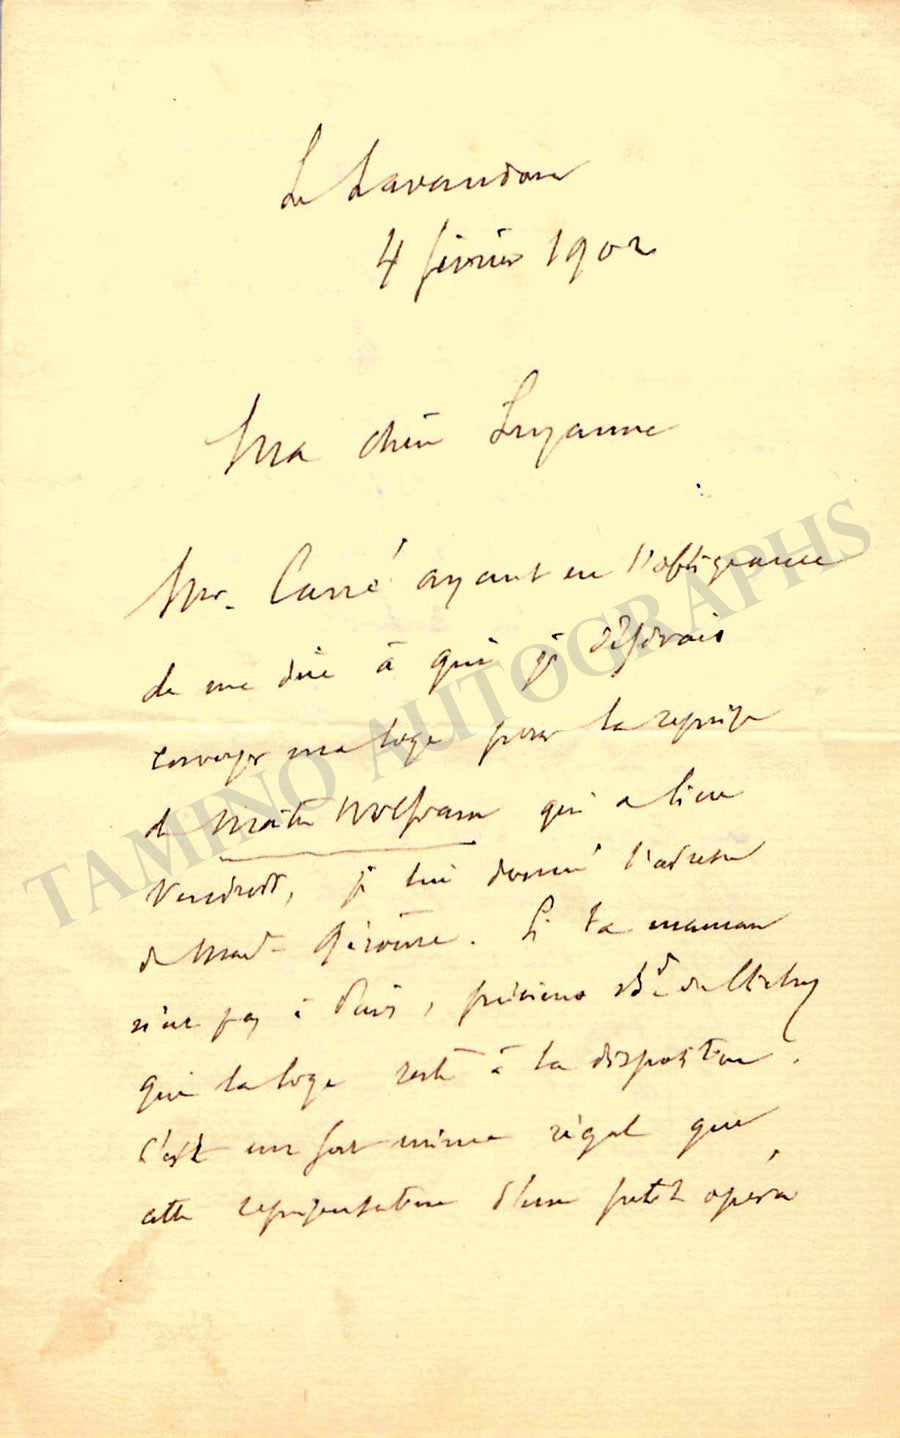 Le Lavandou
4 février 1902
Ma chère Suzanne
Mr. Carré ayant eu l'obligeance
de me dire à qui je désirais
envoyer ma loge pour la reprise
de Maître Wolfram qui a lieu
Vendredi, je lui donnai l'adresse
de Mad. . Si ta maman
n'est pas à Paris, préviens Bd de Clichy
que la loge reste à ta disposition.
C'est un fort mince régal que
cette représentation d'un petit opéra
TAMINO AUTOGRAPHS